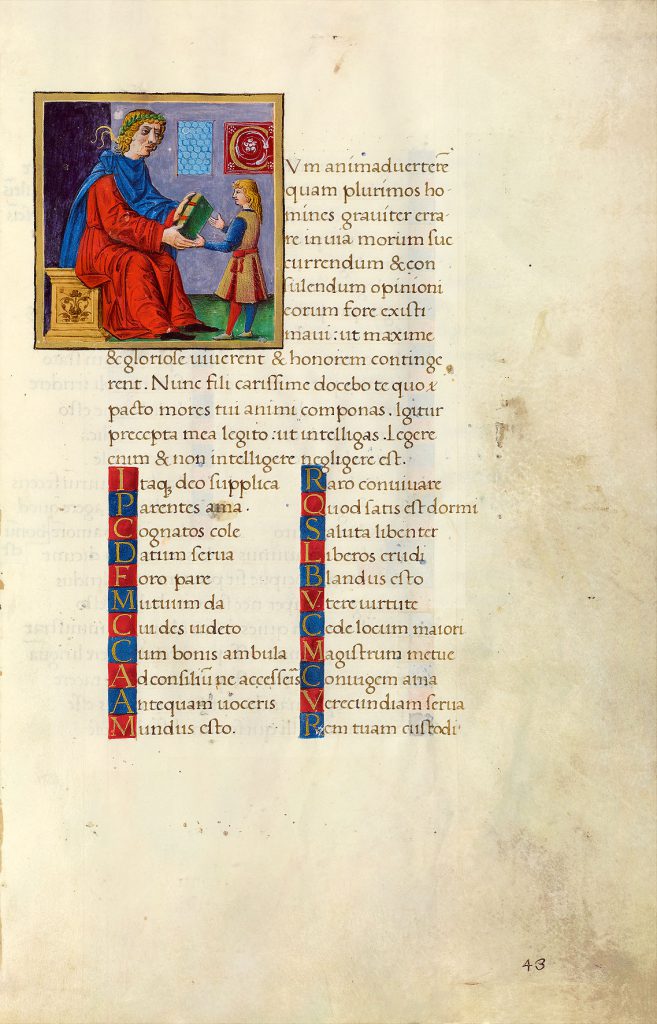 C
Vm animaduertere
quam plurimos ho-
mines grauiter erra-
re in uia morum suc
currendum & con
sulendum opinioni
eorum fore existi
maui: ut maxime
& gloriose uiuerent & honorem continge
rent. Nunc fili carissime docebo te quo
pacto mores tui animi componas. Igitur
precepta mea legito: ut intelligas. Legere
enim & non intelligere negligere est.
Itaq; deo supplica
Parentes ama.
Cognatos cole
Datum serua
Foro pare
Mutuum da
Cui des uideto
Cum bonis ambula
Ad consiliū ne accesseris
Antequam uoceris
Mundus esto.
Raro conuiuare
Quod satis est dormi
Saluta libenter
Liberos erudi
Blandus esto
Vtere uirtute
Cede locum maiori
Magistrum metue
Coniugem ama
Verecundiam serua
Rem tuam custodi
43